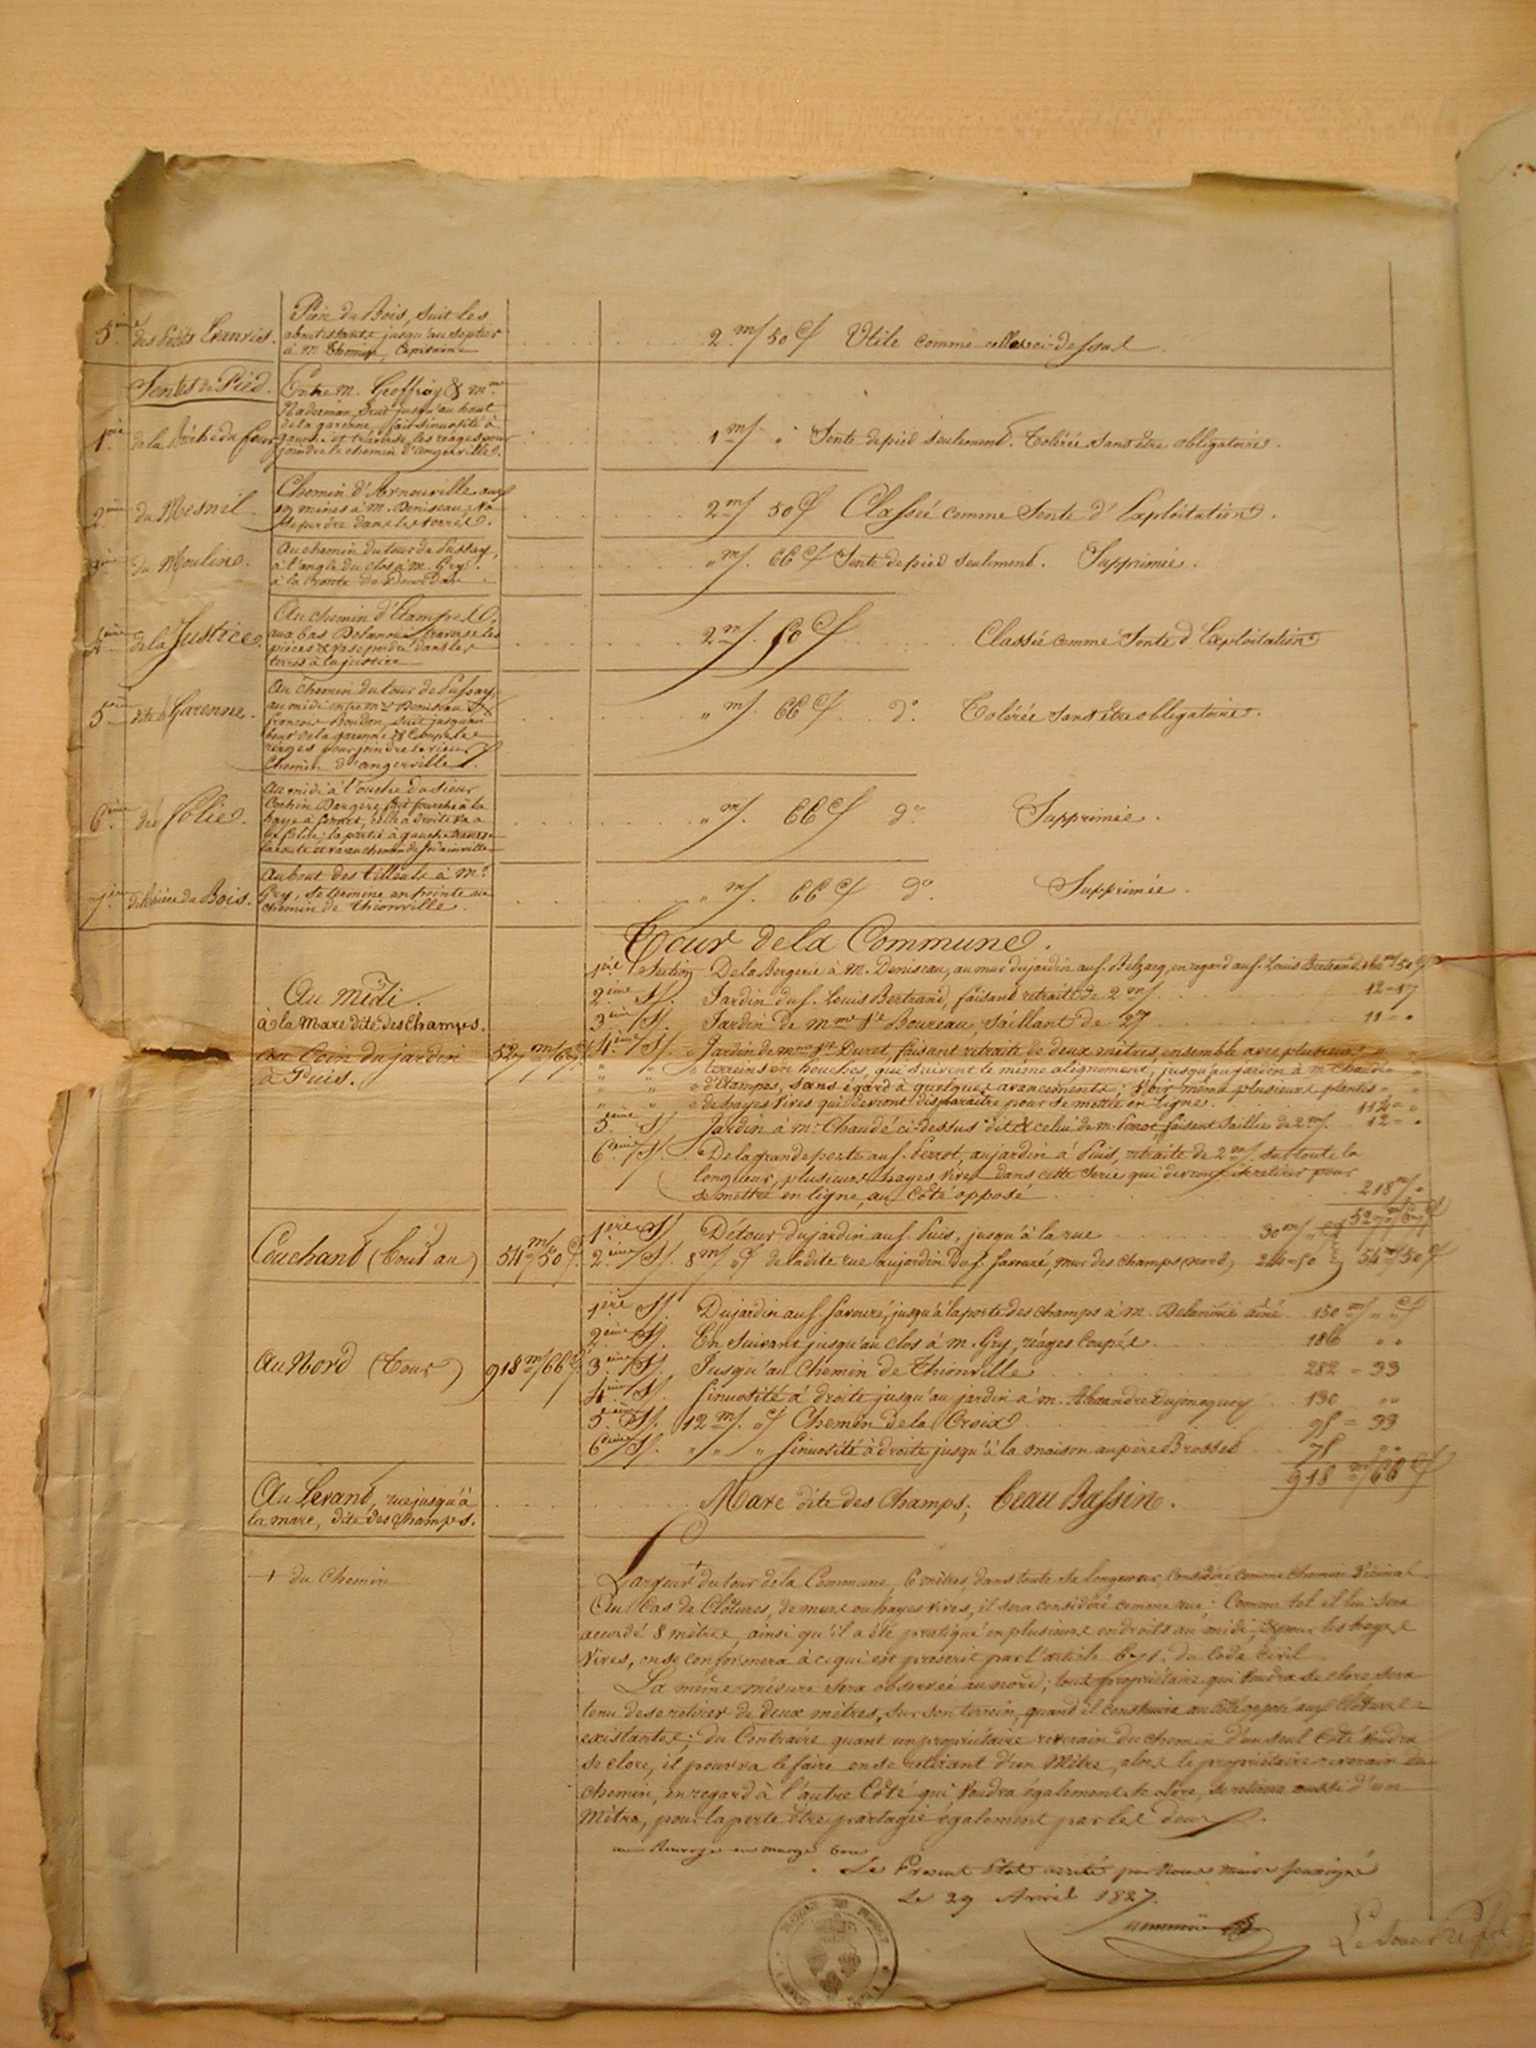 5.ème des Petits
Pièce du Bois, suit les
aboutissants jusqu'au septier
à M. Thomas, Capitaine
2.m/ 50 c/ Utile comme celle ci-dessus.
Sentes de Pied.
1ère de la Brèche du four
Entre M. Geoffroy & Mme
Naderman, suit jusqu'au bout
de la garenne, fait sinuosité à
gauche et traverse les réages pour
joindre le chemin d'angerville.
1 m/ " Sente de pied seulement. Tolérée sans être obligatoire.
2ème du Mesnil.
Chemin d'Arnouville aux
19 mines à M. Deniseau, va
se perdre dans les terres.
2 m/ 50 c/ Classée comme Sente d'Exploitation.
3ème du Moulin.
Au chemin du tour de Pussay,
à l'angle du clos à M. Gry.
à la Route de Dourdan.
" m/. 66 c/ Sente de pied seulement. Supprimée.
4ème de la Justice.
Au chemin d'Étampes,
aux bas Delanoue, traverse les
pièces & va se perdre dans les
terres à la justice
2 m/. 50 c/ Classée comme Sente d'Exploitation
5ème dite la Garenne.
Au chemin du tour de Pussay,
au midi entre M.r Deniseau &
françois Boudon, suit jusqu'au
bout de la garenne & coupe les
réages pour joindre le vieux
Chemin d'angerville.
" m/. 66 c/ d.o Tolérée sans être obligatoire.
6ème de la folie.
Au midi à l'ouche du sieur
fait fourche à la
haye à celle à droite va à
la folie; la partie à gauche traverse
la route et va au chemin de
" m/. 66 c/ d.o Supprimée.
7ème dite pièce du Bois.
Au bout des tilleuls à M.r
Gry, se termine en pointe au
chemin de Thionville.
" m/. 66 c/ d.o Supprimée.
Tour de la Commune.
Au midi.
à la Mare dite des Champs.
au Coin du jardin
à Puis.
527 m/ 67 c/
1ère Section De la Bergerie à M. Deniseau, au mur du jardin au s. en regard au s. Louis Bertrand 50 c/
2ème S/. Jardin du s. Louis Bertrand, faisant retraite de 2 m/ 12 = 17
3ème S/. Jardin de Mme Ve Boureau, saillant de 2 11 = "
4ème S/. Jardin de Mme Ve Duret, faisant retraite de deux mètres, ensemble avec plusieurs
" " terreins en houches, qui suivent le même alignement, jusqu'au jardin à M. Chaudé
" " d'Étampes, sans égard à quelques avancements; Voir même plusieurs plantes
" " de hayes vives qui devront disparaitre pour se mettre en ligne. 114 = "
5ème S/ Jardin à M.r Chaudé ci-dessus dit & celui de M. Perrot faisant saillie de 2 m/. 12 = "
6ème S/. De la grande porte au s. Perrot, au jardin à Puis, retraite de 2 m/. sur toute la
longueur, plusieurs hayes vives dans cette Serie qui devront se retirer pour
se mettre en ligne, au Côté opposé 218 m/ "
527 m/ 67 c/
Couchant (Tour au) 54 m/ 50 c/
1ère S/ Détour du jardin au s. Puis, jusqu'à la rue 30 m/ " c/
2ème S/. 8 m/ " c/ de la dite rue au jardin du s. Savouré, mur des champs (nord) 24 = 50 54 m/ 50 c/
Au Nord (Tour) 918 m/ 66 c/
1ère S/. Du jardin au s. Savouré, jusqu'à la porte des champs à M. Delanoue ainé 150 m/ " c/
2ème S/. En suivant jusqu'au clos à M. Gry, réages coupés 186 " "
3ème S/. Jusqu'au Chemin de Thionville 282 = 33
4ème S/. Sinuosité à droite jusqu'au jardin à M. Alexandre Dujoncquoy 130 " "
5ème S/. 12 m/. " c/ Chemin de la Croix 95 = 33
6ème S/. " " " Sinuosité à droite jusqu'à la maison au père Brosses 75 " "
918 m/ 66 c/
Au Levant, rue jusqu'à
la mare, dite des Champs.
Mare dite des Champs; beau Bassin.
+ du Chemin
Largeur + du tour de la Commune, 6 mètres, dans toute sa longueur, considéré comme chemin Vicinal.
Au Cas de Clôtures, de murs ou hayes vives, il sera considéré comme rue; Comme tel il lui sera
accordé 8 mètres, ainsi qu'il a été pratiqué en plusieurs endroits au midi, & pour les hayes
vives, on se conformera à ce qui est prescrit par l'article 671. du Code Civil.
La même mesure sera observée au nord; tout propriétaire qui voudra se clore sera
tenu de se retirer de deux mètres, sur son terrein, quand il construira au côté opposé aux clôtures
existantes; du Contraire quant un propriétaire riverain du chemin d'un seul Côté voudra
se clore, il pourra le faire en se retirant d'un Mètre, alors le propriétaire riverain du
chemin, en regard à l'autre Côté qui voudra également se clore, se retirera aussi d'un
Mètre, pour la perte être partagée également par les deux.
un Renvoye en marge bon
Le Présent Etat arrêté par Nous maire soussigné
Le 29 Avril 1827.